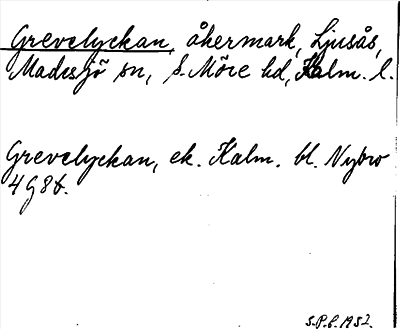 Grevelyckan, åkermark, Ljusås,
Madesjö sn, S. Möre hd, Kalm. l.
Grevelyckan, ek. Kalm. bl. Nybro
4 G 8 d.
S.P.b. 1952.